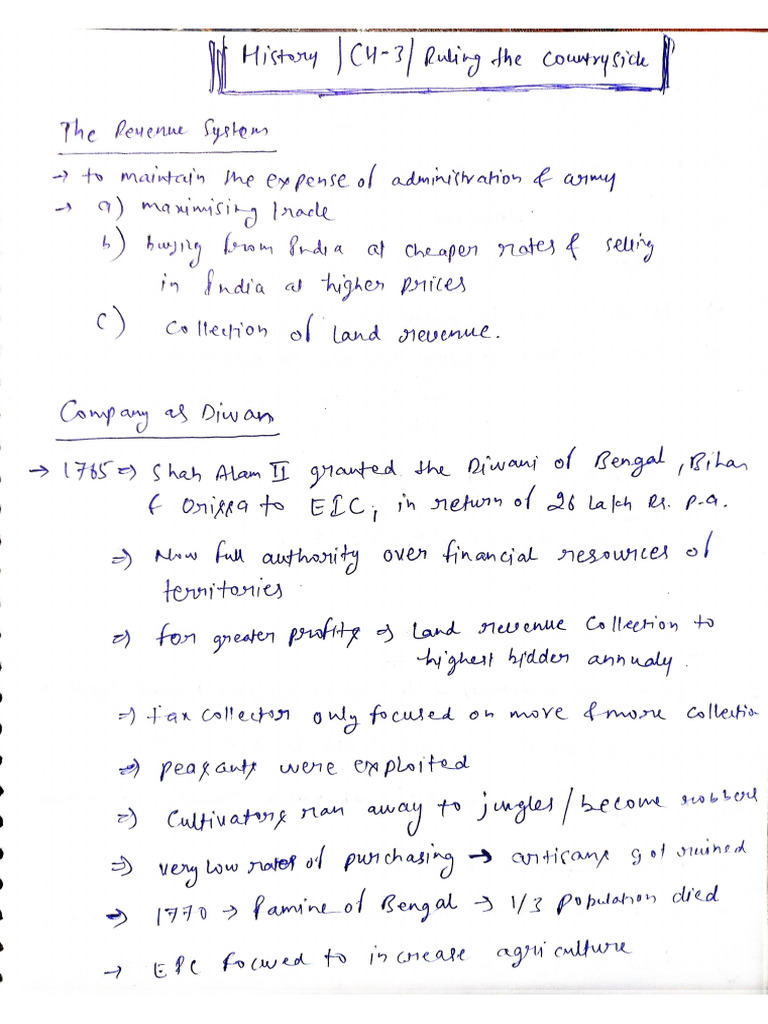 History / CH-3 / Ruling the Countryside
The Revenue System
→ to maintain the expense of administration & army
→ a) maximising trade
b) buying from India at cheaper rates & selling
in India at higher prices
c) Collection of land revenue.
Company as Diwan
→ 1765 ⇒ Shah Alam II granted the Diwani of Bengal, Bihar
& Orissa to EIC, in return of 26 Lakh Rs. p.a.
⇒ Now full authority over financial resources of
territories
⇒ for greater profits ⇒ Land revenue Collection to
highest bidder annualy.
⇒ tax collector only focused on more & more collection
⇒ peasants were exploited
⇒ Cultivators ran away to jungles / become robbers
⇒ very low rates of purchasing → artisans got ruined
→ 1770 → Famine of Bengal → 1/3 population died
→ EIC focused to increase agriculture